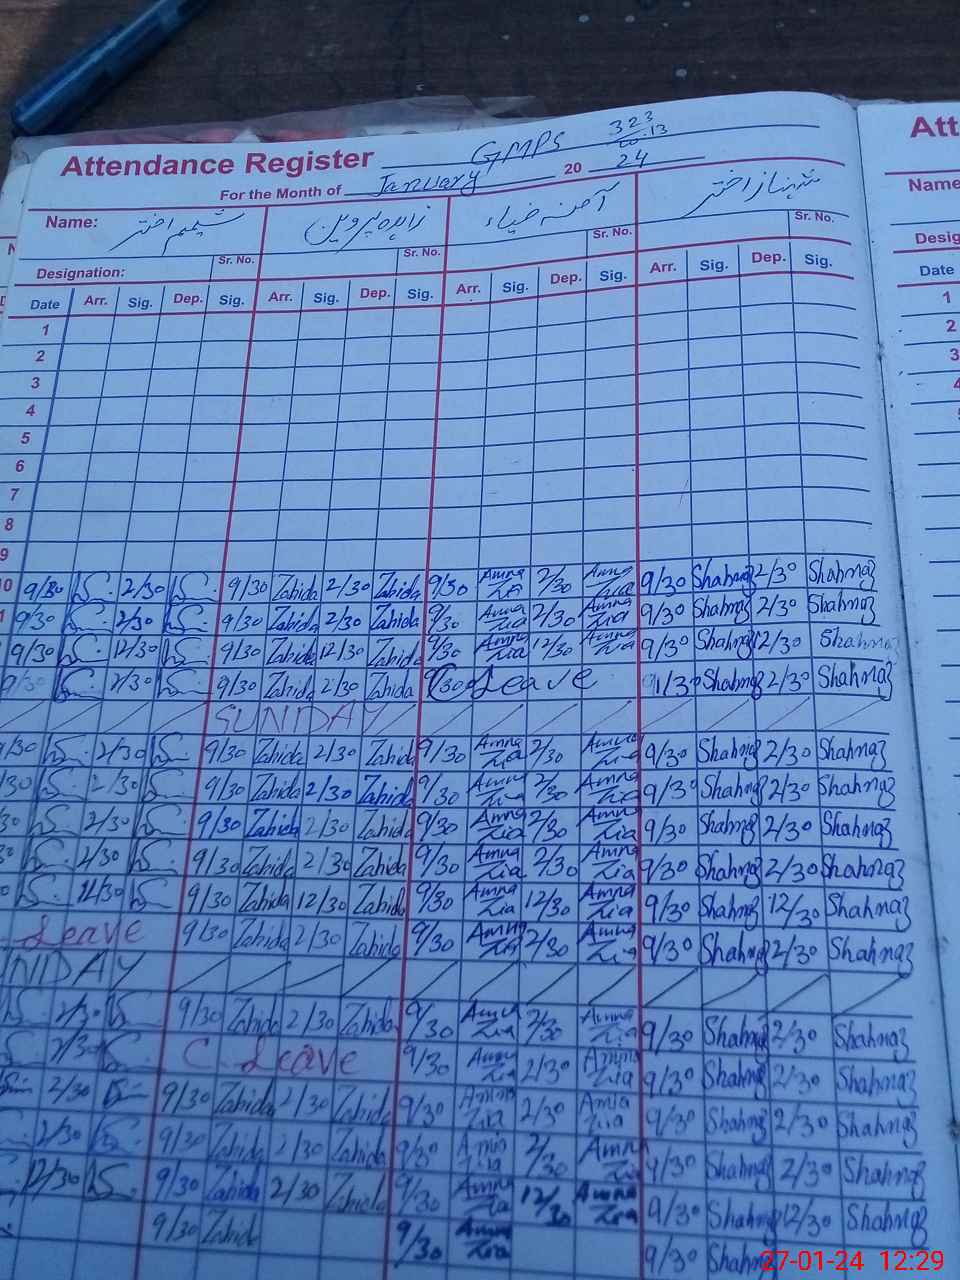 Attendance Register GMPS 323
For the Month of January 20 24
Name: شمیم اختر زاہدہ پروین آمنہ ضیاء شہناز اختر
Sr. No. Sr. No. Sr. No. Sr. No.
Designation:
Date Arr. Sig. Dep. Sig. Arr. Sig. Dep. Sig. Arr. Sig. Dep. Sig. Arr. Sig. Dep. Sig.
1
2
3
4
5
6
7
8
9
10 9/30 2/30 9/30 Zahida 2/30 Zahida 9/30 Amna Zia 2/30 Amna Zia 9/30 Shahnaz 2/30 Shahnaz
9/30 2/30 9/30 Zahida 2/30 Zahida 9/30 Amna Zia 2/30 Amna Zia 9/30 Shahnaz 2/30 Shahnaz
9/30 12/30 9/30 Zahida 12/30 Zahida 9/30 Amna Zia 12/30 Amna Zia 9/30 Shahnaz 12/30 Shahnaz
9/30 2/30 9/30 Zahida 2/30 Zahida 9/30 Leave 9/30 Shahnaz 2/30 Shahnaz
SUNDAY
9/30 2/30 9/30 Zahida 2/30 Zahida 9/30 Amna Zia 2/30 Amna Zia 9/30 Shahnaz 2/30 Shahnaz
/30 2/30 9/30 Zahida 2/30 Zahida 9/30 Amna Zia 2/30 Amna Zia 9/30 Shahnaz 2/30 Shahnaz
30 2/30 9/30 Zahida 2/30 Zahida 9/30 Amna Zia 2/30 Amna Zia 9/30 Shahnaz 2/30 Shahnaz
2/30 9/30 Zahida 2/30 Zahida 9/30 Amna Zia 2/30 Amna Zia 9/30 Shahnaz 2/30 Shahnaz
12/30 9/30 Zahida 12/30 Zahida 9/30 Amna Zia 12/30 Amna Zia 9/30 Shahnaz 12/30 Shahnaz
Leave 9/30 Zahida 2/30 Zahida 9/30 Amna Zia 2/30 Amna Zia 9/30 Shahnaz 2/30 Shahnaz
NDAY
2/30 9/30 Zahida 2/30 Zahida 9/30 Amna Zia 2/30 Amna Zia 9/30 Shahnaz 2/30 Shahnaz
2/30 C. Leave 9/30 Amna Zia 2/30 Amna Zia 9/30 Shahnaz 2/30 Shahnaz
2/30 9/30 Zahida 2/30 Zahida 9/30 Amna Zia 2/30 Amna Zia 9/30 Shahnaz 2/30 Shahnaz
2/30 9/30 Zahida 2/30 Zahida 9/30 Amna Zia 2/30 Amna Zia 9/30 Shahnaz 2/30 Shahnaz
12/30 9/30 Zahida 2/30 Zahida 9/30 Amna Zia 12/30 Amna Zia 9/30 Shahnaz 12/30 Shahnaz
9/30 Zahida 9/30 Amna Zia 9/30 Shahnaz
Att
Name
Desig
Date
1
2
3
4
27-01-24 12:29